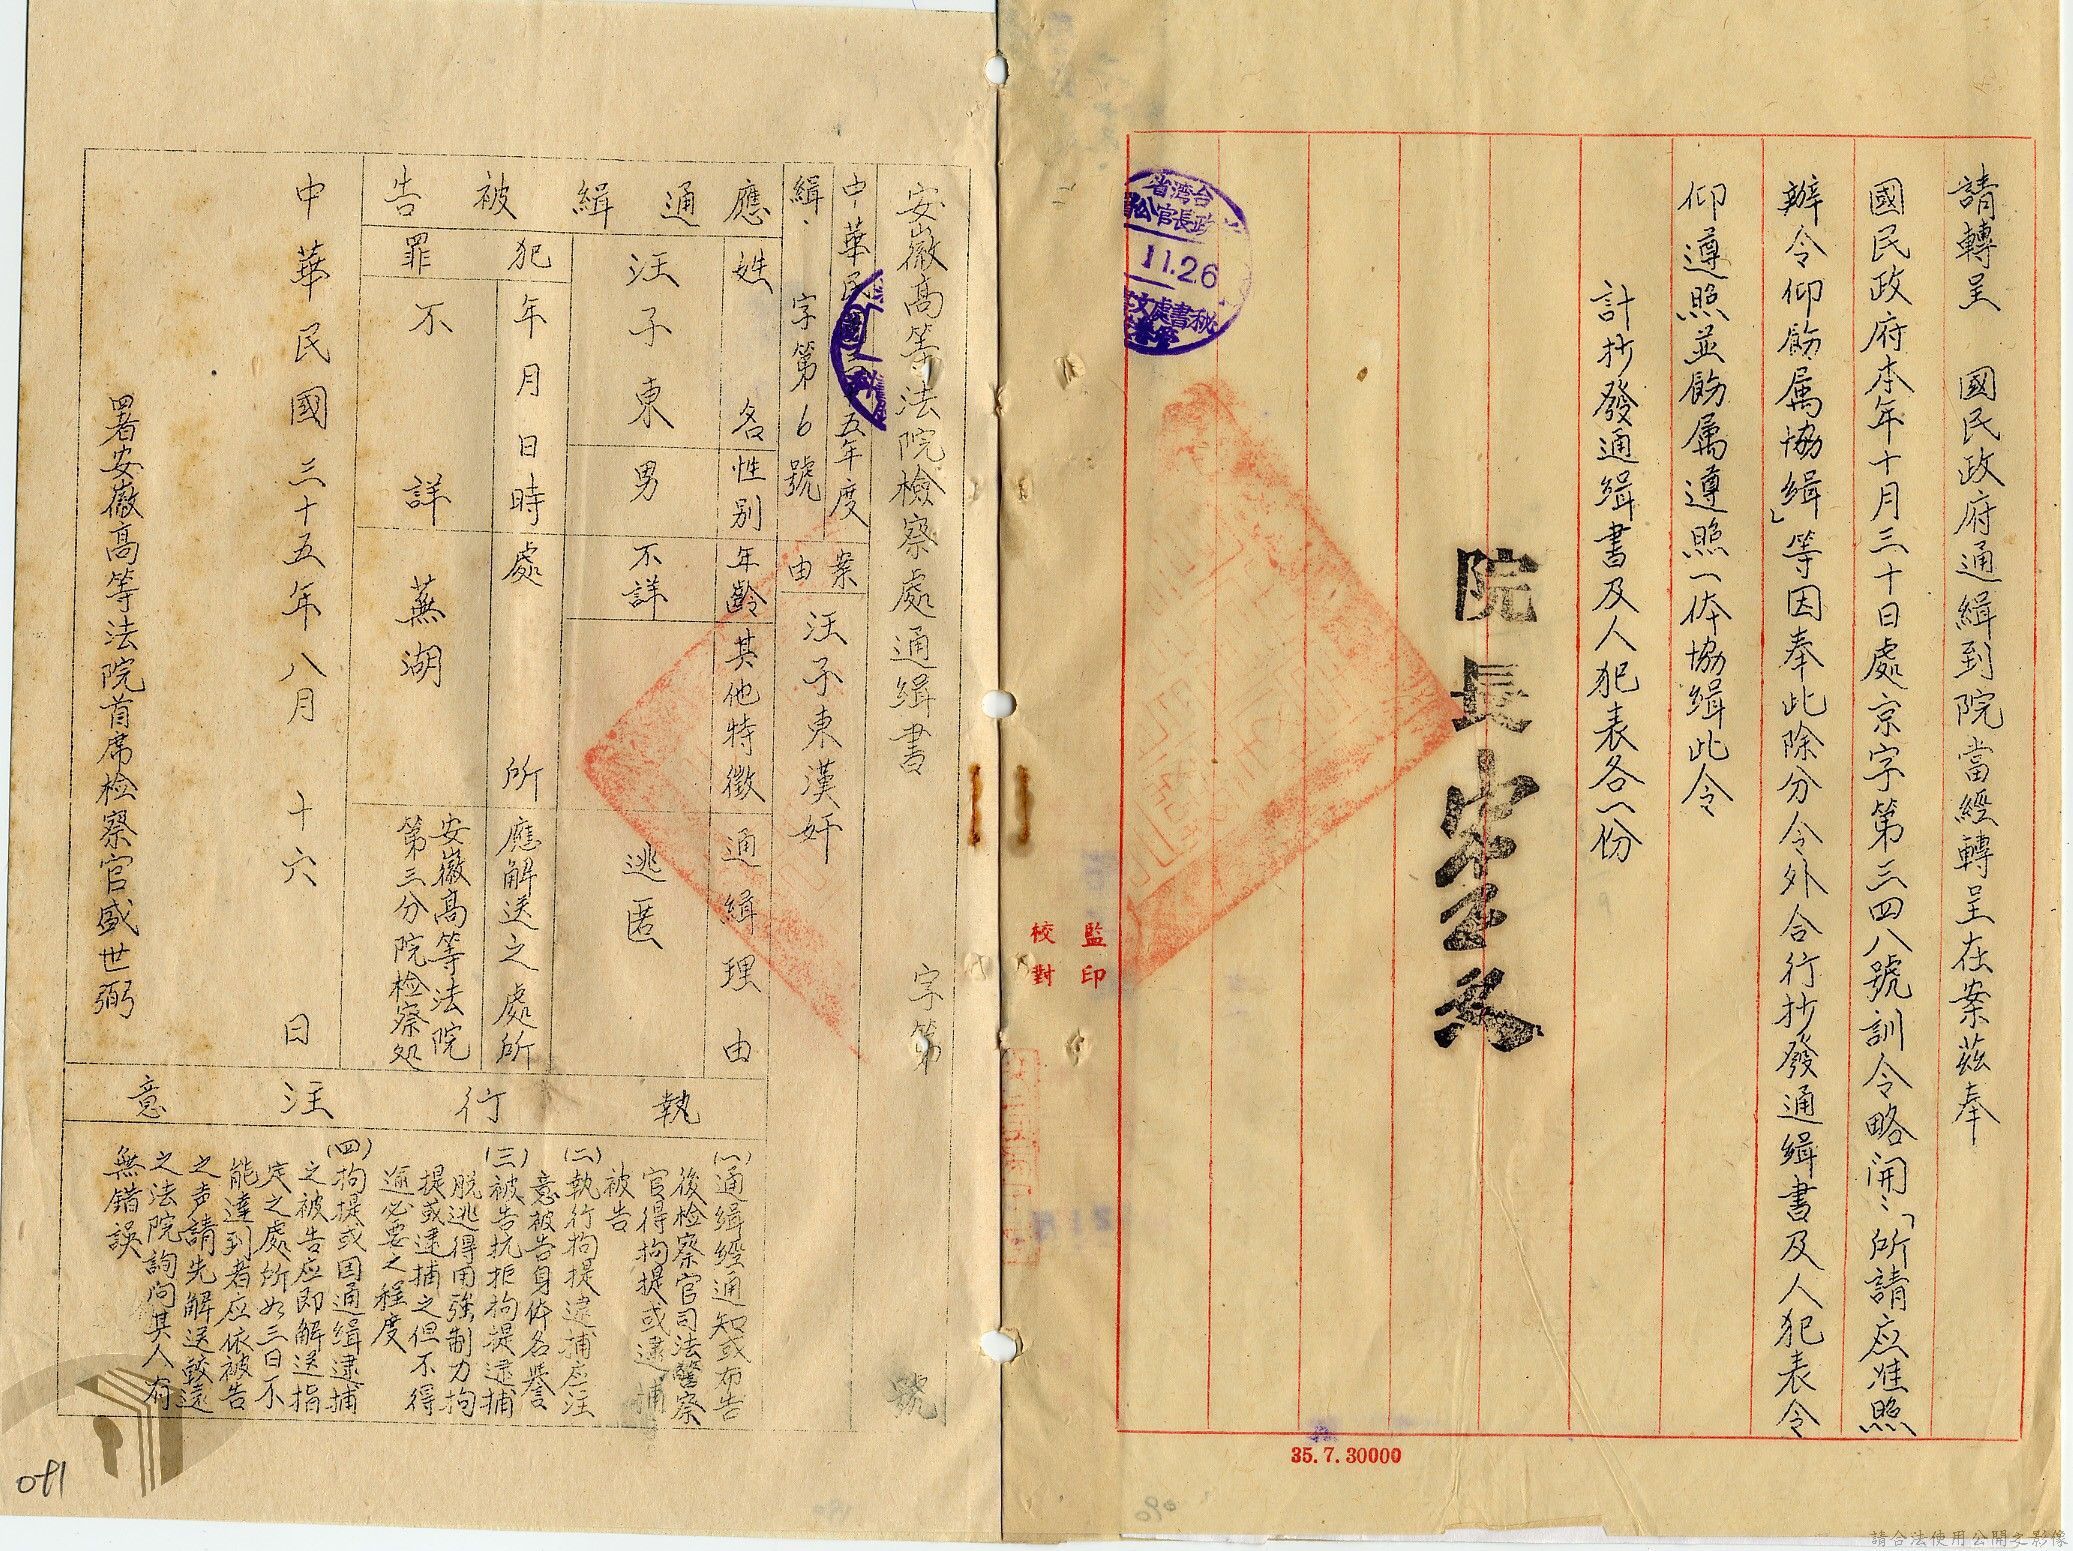 請轉呈　國民政府通緝到院當經轉呈在案茲奉
國民政府本年十月三十日處京字第三四八號訓令略開：「所請应准照
辦令仰飭属協緝」等因奉此除分令外合行抄發通緝書及人犯表令
仰遵照並飭属遵照一体協緝此令
計抄發通緝書及人犯表各一份
院長宋子文
台灣省
11.26
監印
校對
35.7.30000
安徽高等法院檢察處通緝書　字第　號
中華民國三十五年度
緝字第6號
案由
汪子東漢奸
應通緝被告
姓名
性別
年齡
其他特徵
通緝理由
汪子東
男
不詳
逃匿
犯罪
年月日時
處所
應解送之處所
不詳
蕪湖
安徽高等法院
第三分院检察処
中華民國三十五年八月十六日
署安徽高等法院首席检察官盛世弼
執行注意
(一)通緝經通知或布告
後检察官司法警察
官得拘提或逮捕
被告
(二)執行拘提逮捕应注
意被告身体名譽
(三)被告抗拒拘提逮捕
脱逃得用強制力拘
提或逮捕之但不得
逾必要之程度
(四)拘提或因通緝逮捕
之被告应即解送指
定之處所如三日不
能達到者应依被告
之声請先解送較遠
之法院詢问其人有
無錯誤
091
090
請合法使用公開之影像